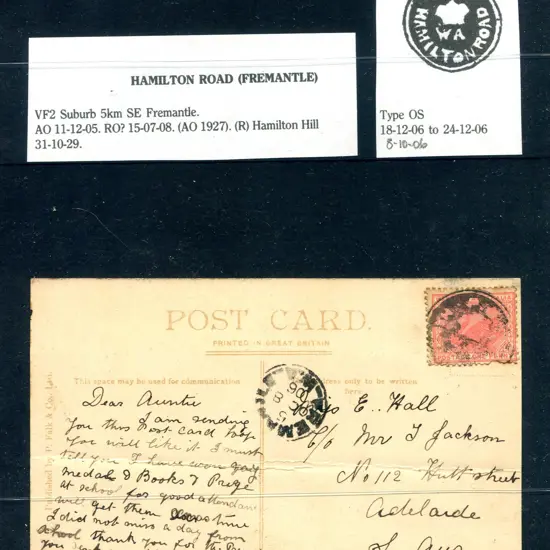 HAMILTON ROAD (FREMANTLE)
VF2 Suburb 5km SE Fremantle.
AO 11-12-05. RO? 15-07-08. (AO 1927). (R) Hamilton Hill
31-10-29.
WA
HAMILTON ROAD
Type OS
18-12-06 to 24-12-06
8-10-06
POST CARD.
PRINTED IN GREAT BRITAIN
This space may be used for communication
dress only to be written
here
Dear Auntie
I am sending
you this Post card hope
you will like it I must
tell you I have won
medals & Books & Prize
at school for good attendan
will get them time
I did not miss a day from
school thank you for the
you
E. Hall
c/o Mr J Jackson
No 112 Hutt street
Adelaide